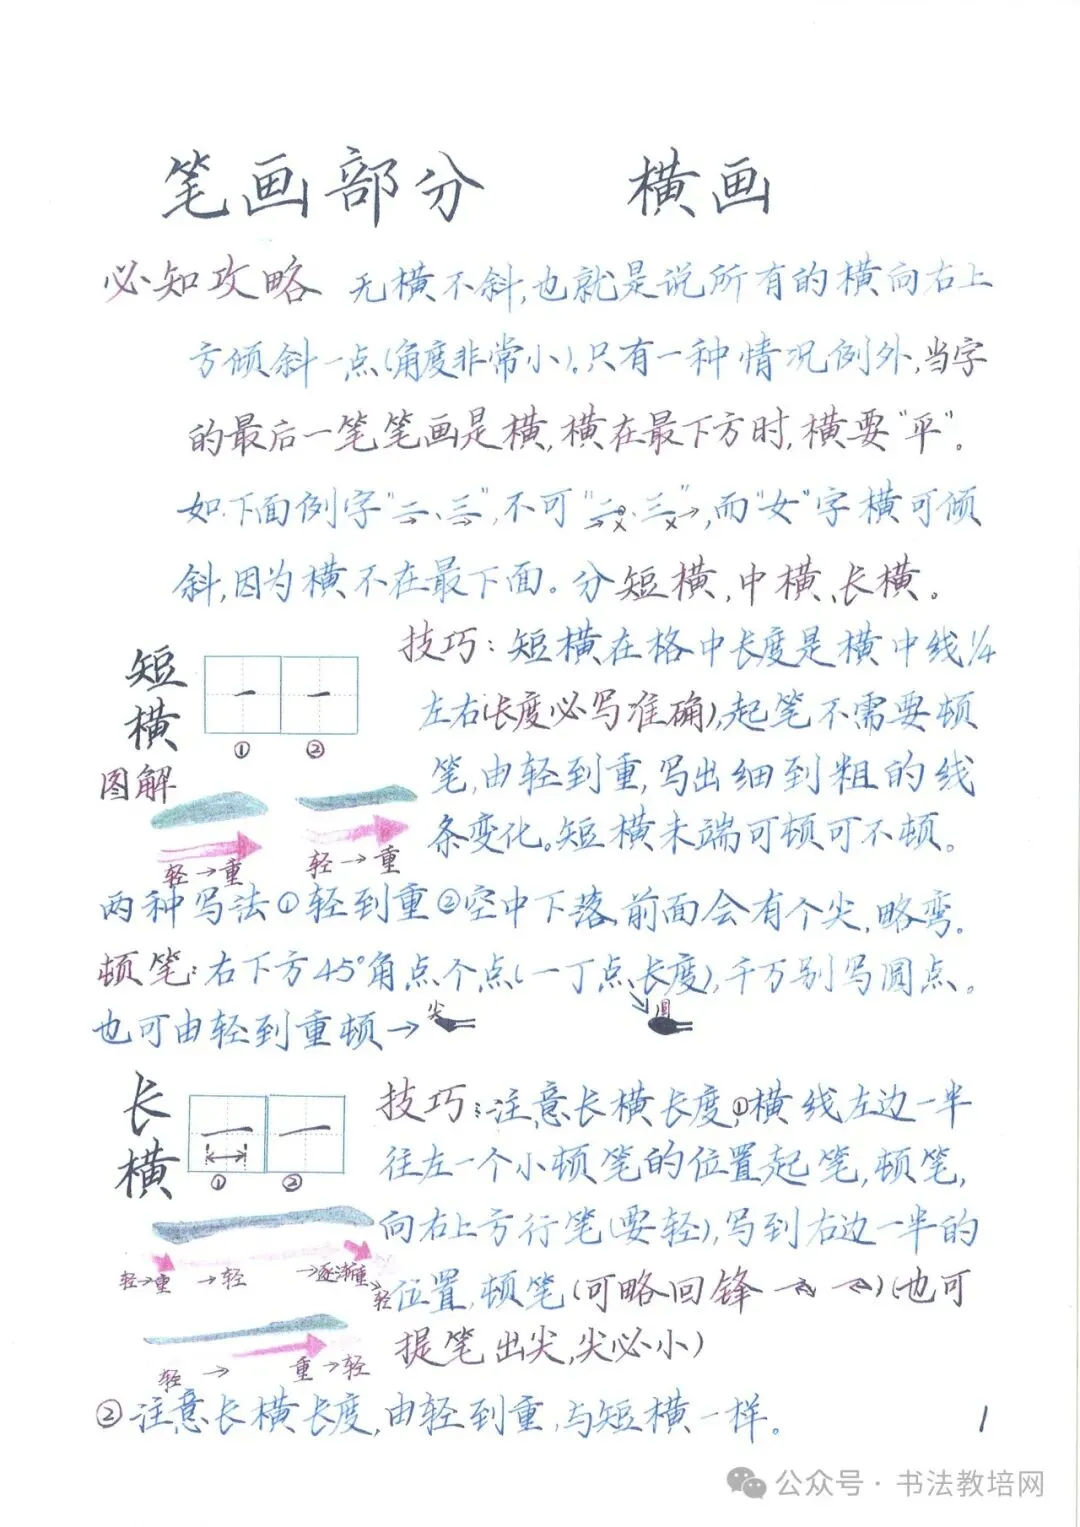 笔画部分 横画
必知攻略 无横不斜,也就是说所有的横向右上
方倾斜一点(角度非常小)。只有一种情况例外,当字
的最后一笔笔画是横,横在最下方时,横要“平”。
如下面例字“二、三”,不可“二、三”,而“女”字横可倾
斜,因为横不在最下面。分短横,中横、长横。
短横
① ②
技巧:短横在格中长度是横中线1/4
左右(长度必写准确),起笔不需要顿
笔,由轻到重,写出细到粗的线
条变化。短横末端可顿可不顿。
图解
轻→重 轻→重
两种写法①轻到重②空中下落,前面会有个尖,略弯。
顿笔:右下方45°角点个点(一丁点长度),千万别写圆点。
也可由轻到重顿→尖 圆
长横
① ②
技巧:注意长横长度,①横线左边一半
往左一个小顿笔的位置起笔,顿笔,
向右上方行笔(要轻),写到右边一半的
位置,顿笔(可略回锋)(也可
提笔出尖,尖必小)
轻→重 →轻 →逐渐重→轻
轻→ 重→轻
②注意长横长度,由轻到重,与短横一样。
1
公众号·书法教培网